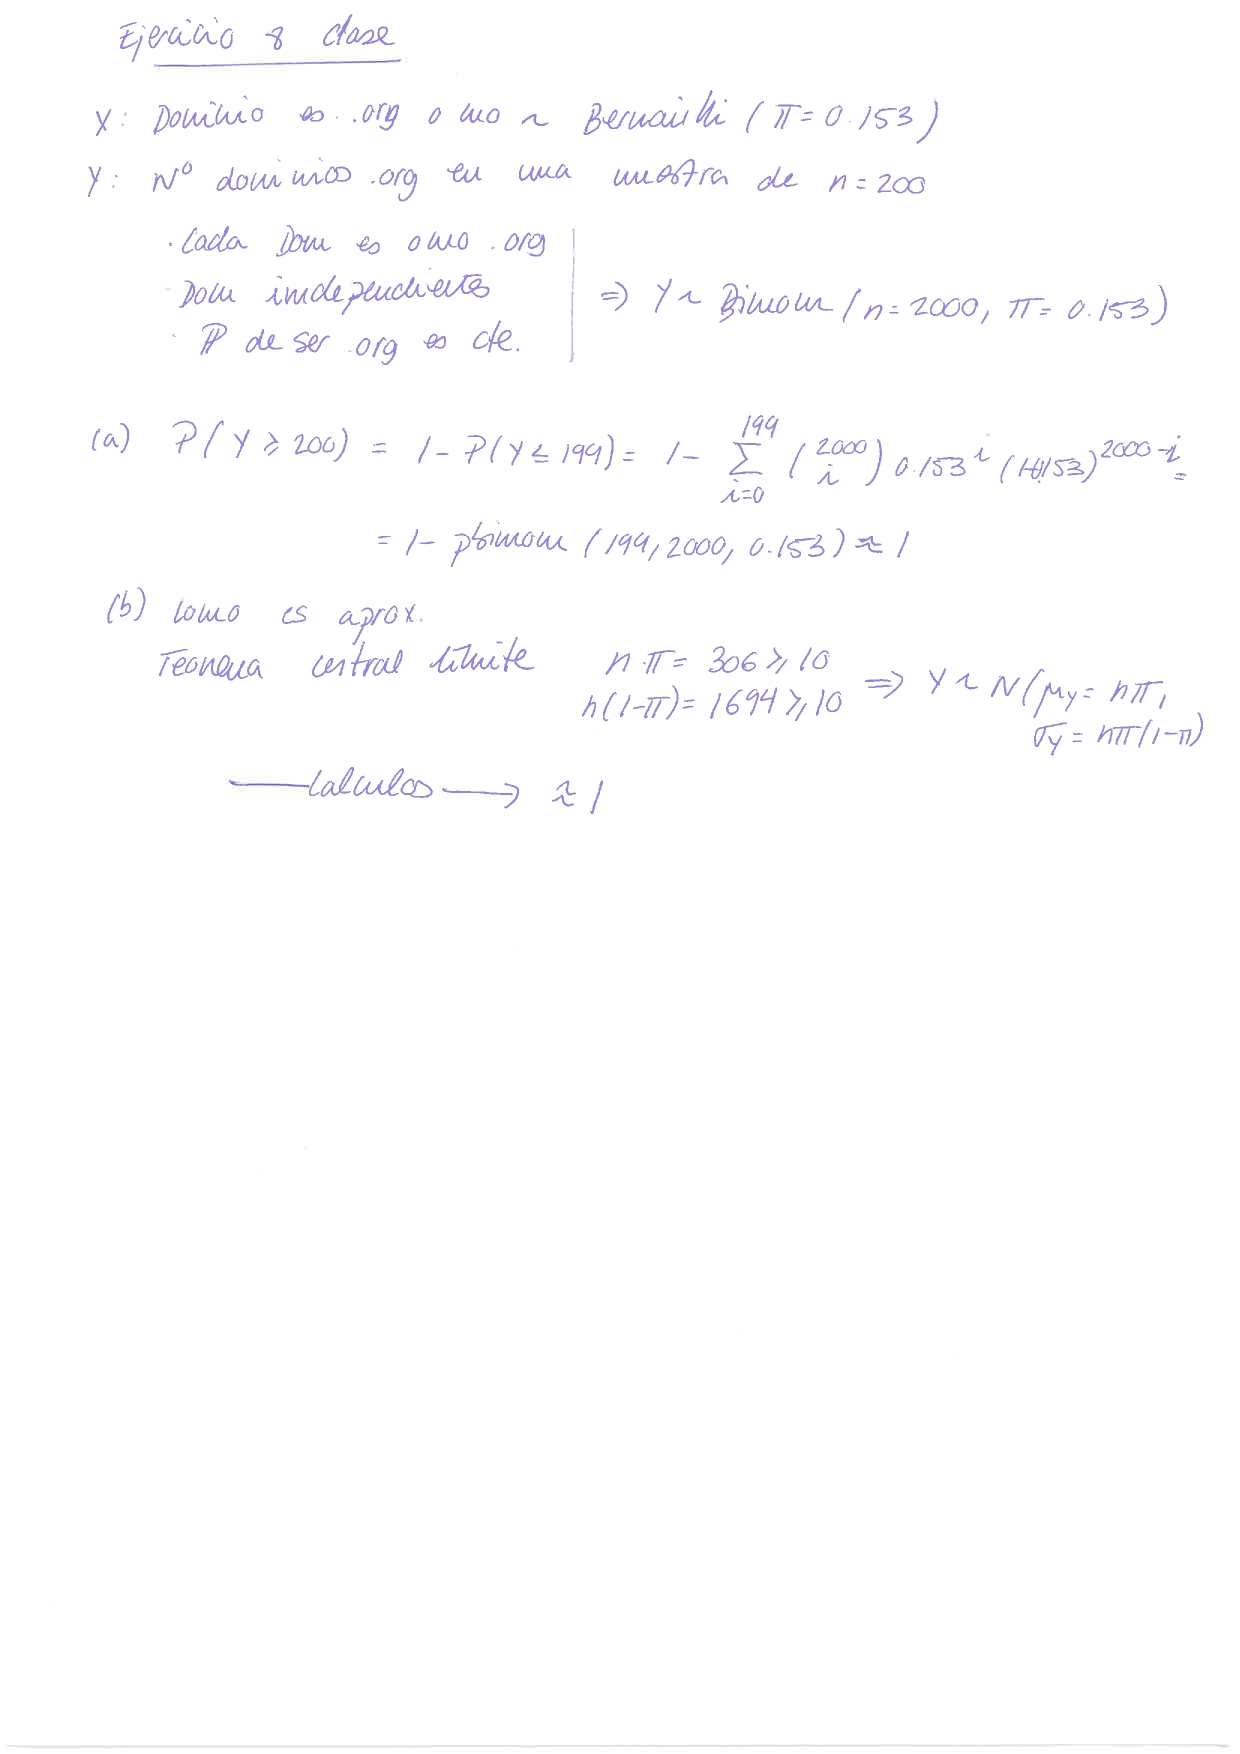 Ejercicio 8 clase
X: Dominio es .org o no ~ Bernoulli (π=0.153)
Y: Nº dominios .org en una muestra de n=200
· Cada Dom es o no .org
· Dom independientes ⇒ Y ~ Binom (n=2000, π=0.153)
· P de ser .org es cte.
(a) P(Y ≥ 200) = 1 - P(Y ≤ 199) = 1 - ∑_{i=0}^{199} (2000 i) 0.153^i (1-0.153)^{2000-i} =
= 1 - pbinom (199, 2000, 0.153) ≈ 1
(b) Como es aprox.
Teorema central límite n·π = 306 ≥ 10 ⇒ Y ~ N(μ_Y = nπ,
n(1-π) = 1694 ≥ 10 σ_Y = nπ(1-π)
—— Calculos ⟶ ≈ 1